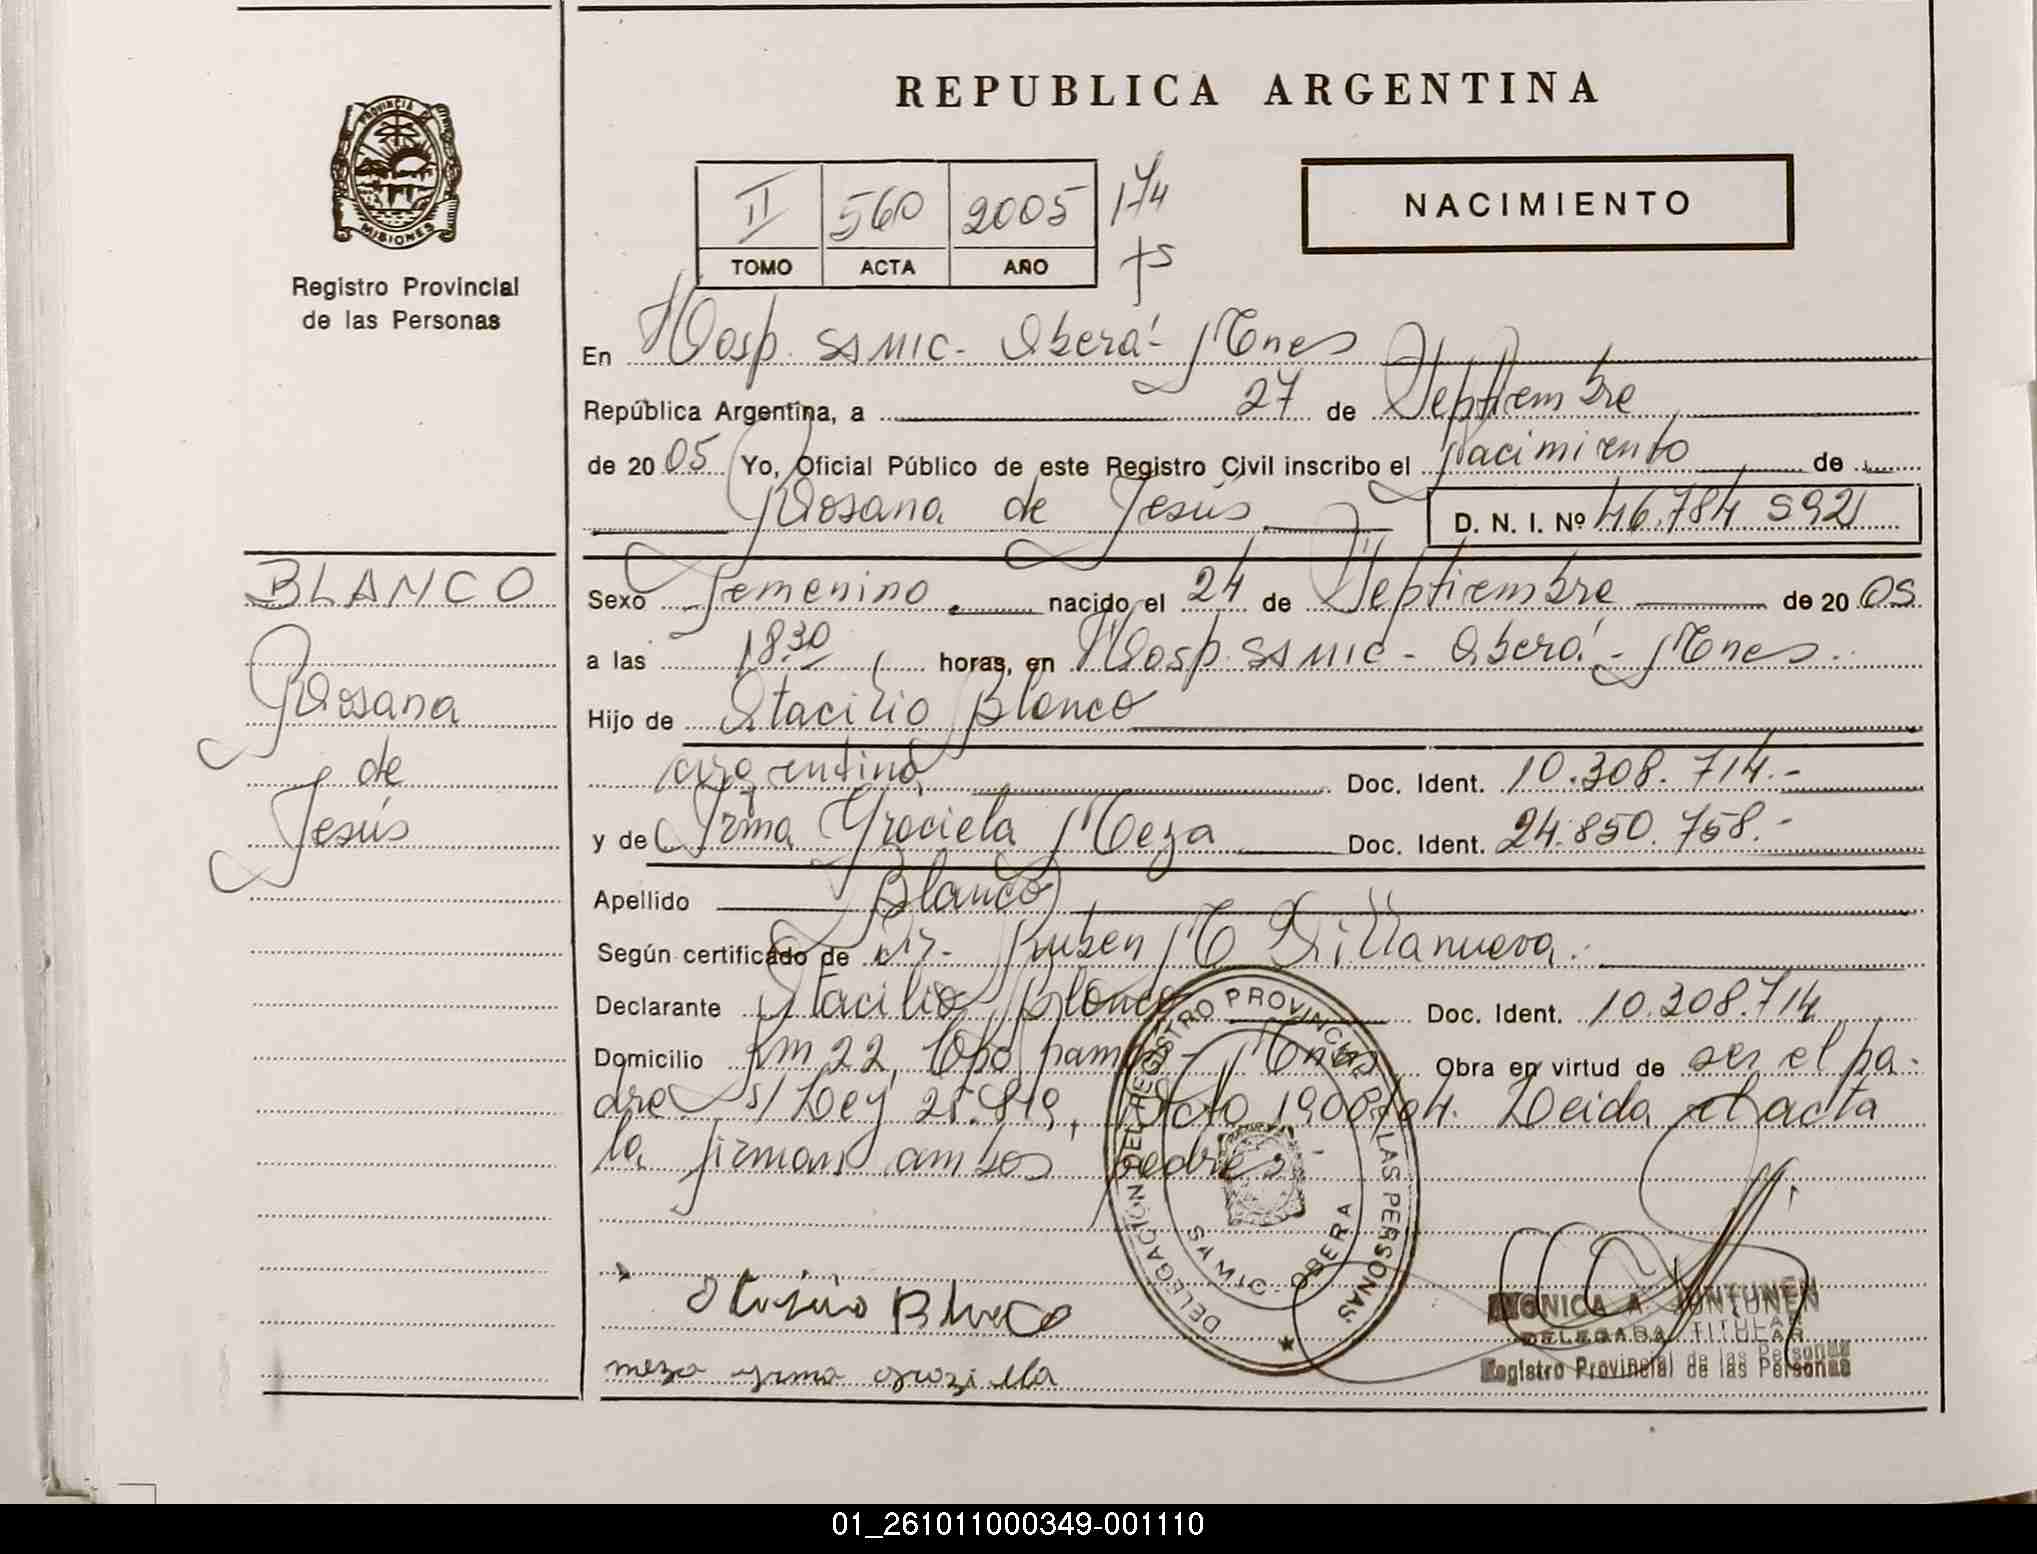 REPUBLICA ARGENTINA
PROVINCIA DE
MISIONES
Registro Provincial
de las Personas
II 560 2005 174
TOMO ACTA AÑO
NACIMIENTO
En Hosp. SAMIC - Oberá - Mnes
República Argentina, a 27 de Septiembre
de 20 05 Yo, Oficial Público de este Registro Civil inscribo el Nacimiento de
Rosana de Jesús D. N. I. Nº 46.784 592
BLANCO
Rosana
de
Jesús
Sexo Femenino nacido el 24 de Septiembre de 20 05
a las 18 30 horas, en Hosp. SAMIC - Oberá - Mnes.
Hijo de Otacilio Blanco
argentino Doc. Ident. 10.308.714.-
y de Irma Graciela Meza Doc. Ident. 24.850.758.-
Apellido Blanco
Según certificado de Dr. Ruben M Villanueva.
Declarante Otacilio Blanco Doc. Ident. 10.308.714
Domicilio Km 22, Cpo Ramón - Mnes Obra en virtud de ser el pa-
dre s/ Ley 25.819, Dcto 1900/04. Leida el acta
la firman ambos padres -
DELEGACIÓN DEL REGISTRO PROVINCIAL DE LAS PERSONAS
OBERA
Blanco
meza yrma
MONICA A JUNTUNEN
DELEGADA TITULAR
Registro Provincial de las Personas
01_261011000349-001110